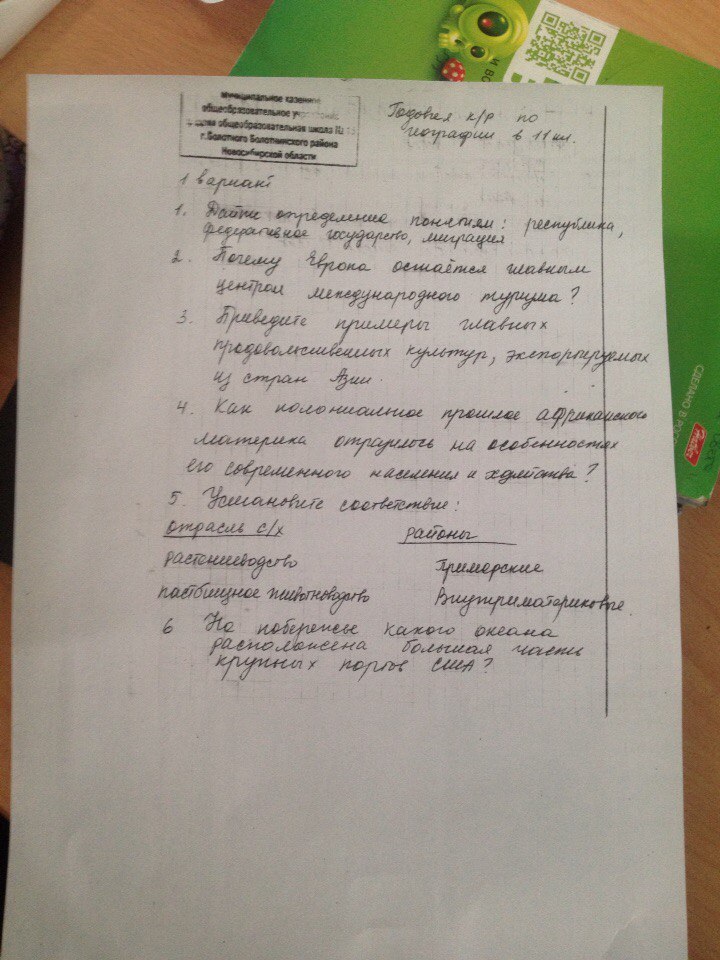 Муниципальное казенное
общеобразовательное
общеобразовательная школа №
г.Болотного Болотнинского района
Новосибирской области
Годовая к/р по
географии в 11 кл.
1 вариант
1. Дайте определение понятиям: республика,
федеративное государство, миграция
2. Почему Европа остаётся главным
центром международного туризма?
3. Приведите примеры главных
продовольственных культур, экспортируемых
из стран Азии.
4. Как колониальное прошлое африканского
материка отразилось на особенностях
его современного населения и хозяйства?
5. Установите соответствие:
отрасль с/х районы
растениеводство Приморские
пастбищное животноводство Внутриматериковые.
6 На побережье какого океана
расположена большая часть
крупных портов США?
СДЕЛАНО В РОС